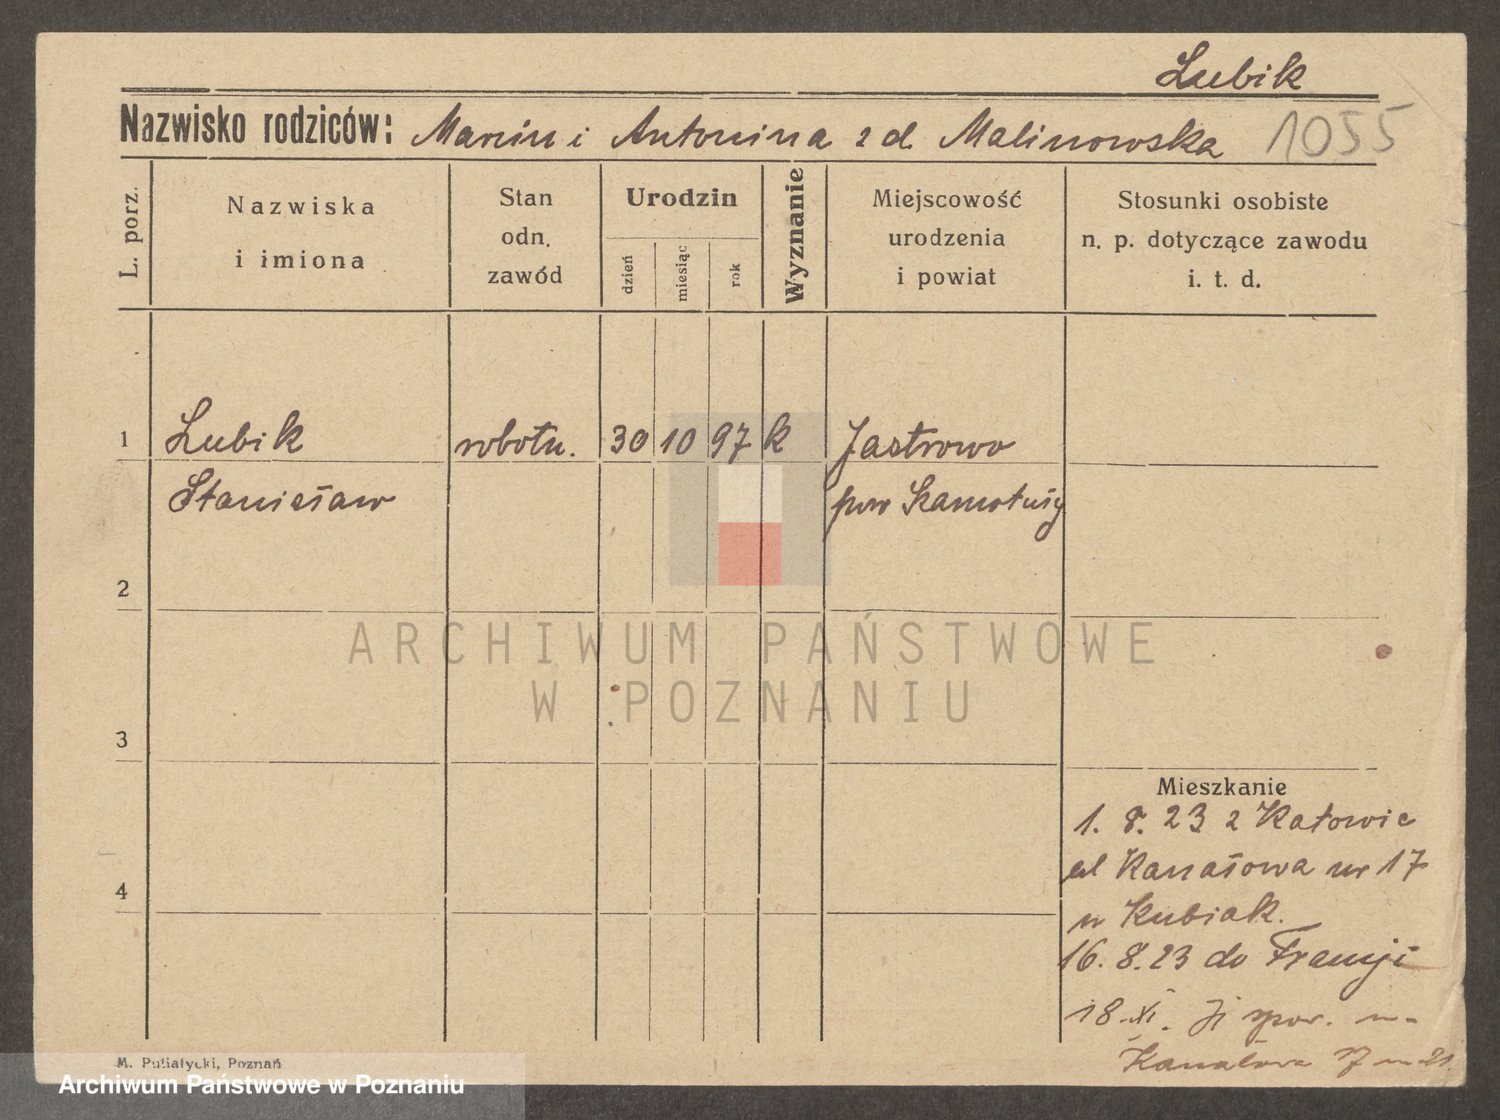 Lubik
Nazwisko rodziców: Marcin i Antonina z d. Malinowska 1055
L. porz.
Nazwiska
i imiona
Stan
odn.
zawód
Urodzin
dzień
miesiąc
rok
Wyznanie
Miejscowość
urodzenia
i powiat
Stosunki osobiste
n. p. dotyczące zawodu
i. t. d.
1 Lubik robotn. 30 10 97 k Jastrowo
Stanisław pow Szamotuły
2
3
4
Mieszkanie
1. 8. 23 z Katowic
ul Kanałowa nr 17
u Kubiak.
16. 8. 23 do Francji
18. XI. spow.
Kanałowa 17 m 21
M. Putiatycki, Poznań
ARCHIWUM PAŃSTWOWE
W POZNANIU
Archiwum Państwowe w Poznaniu